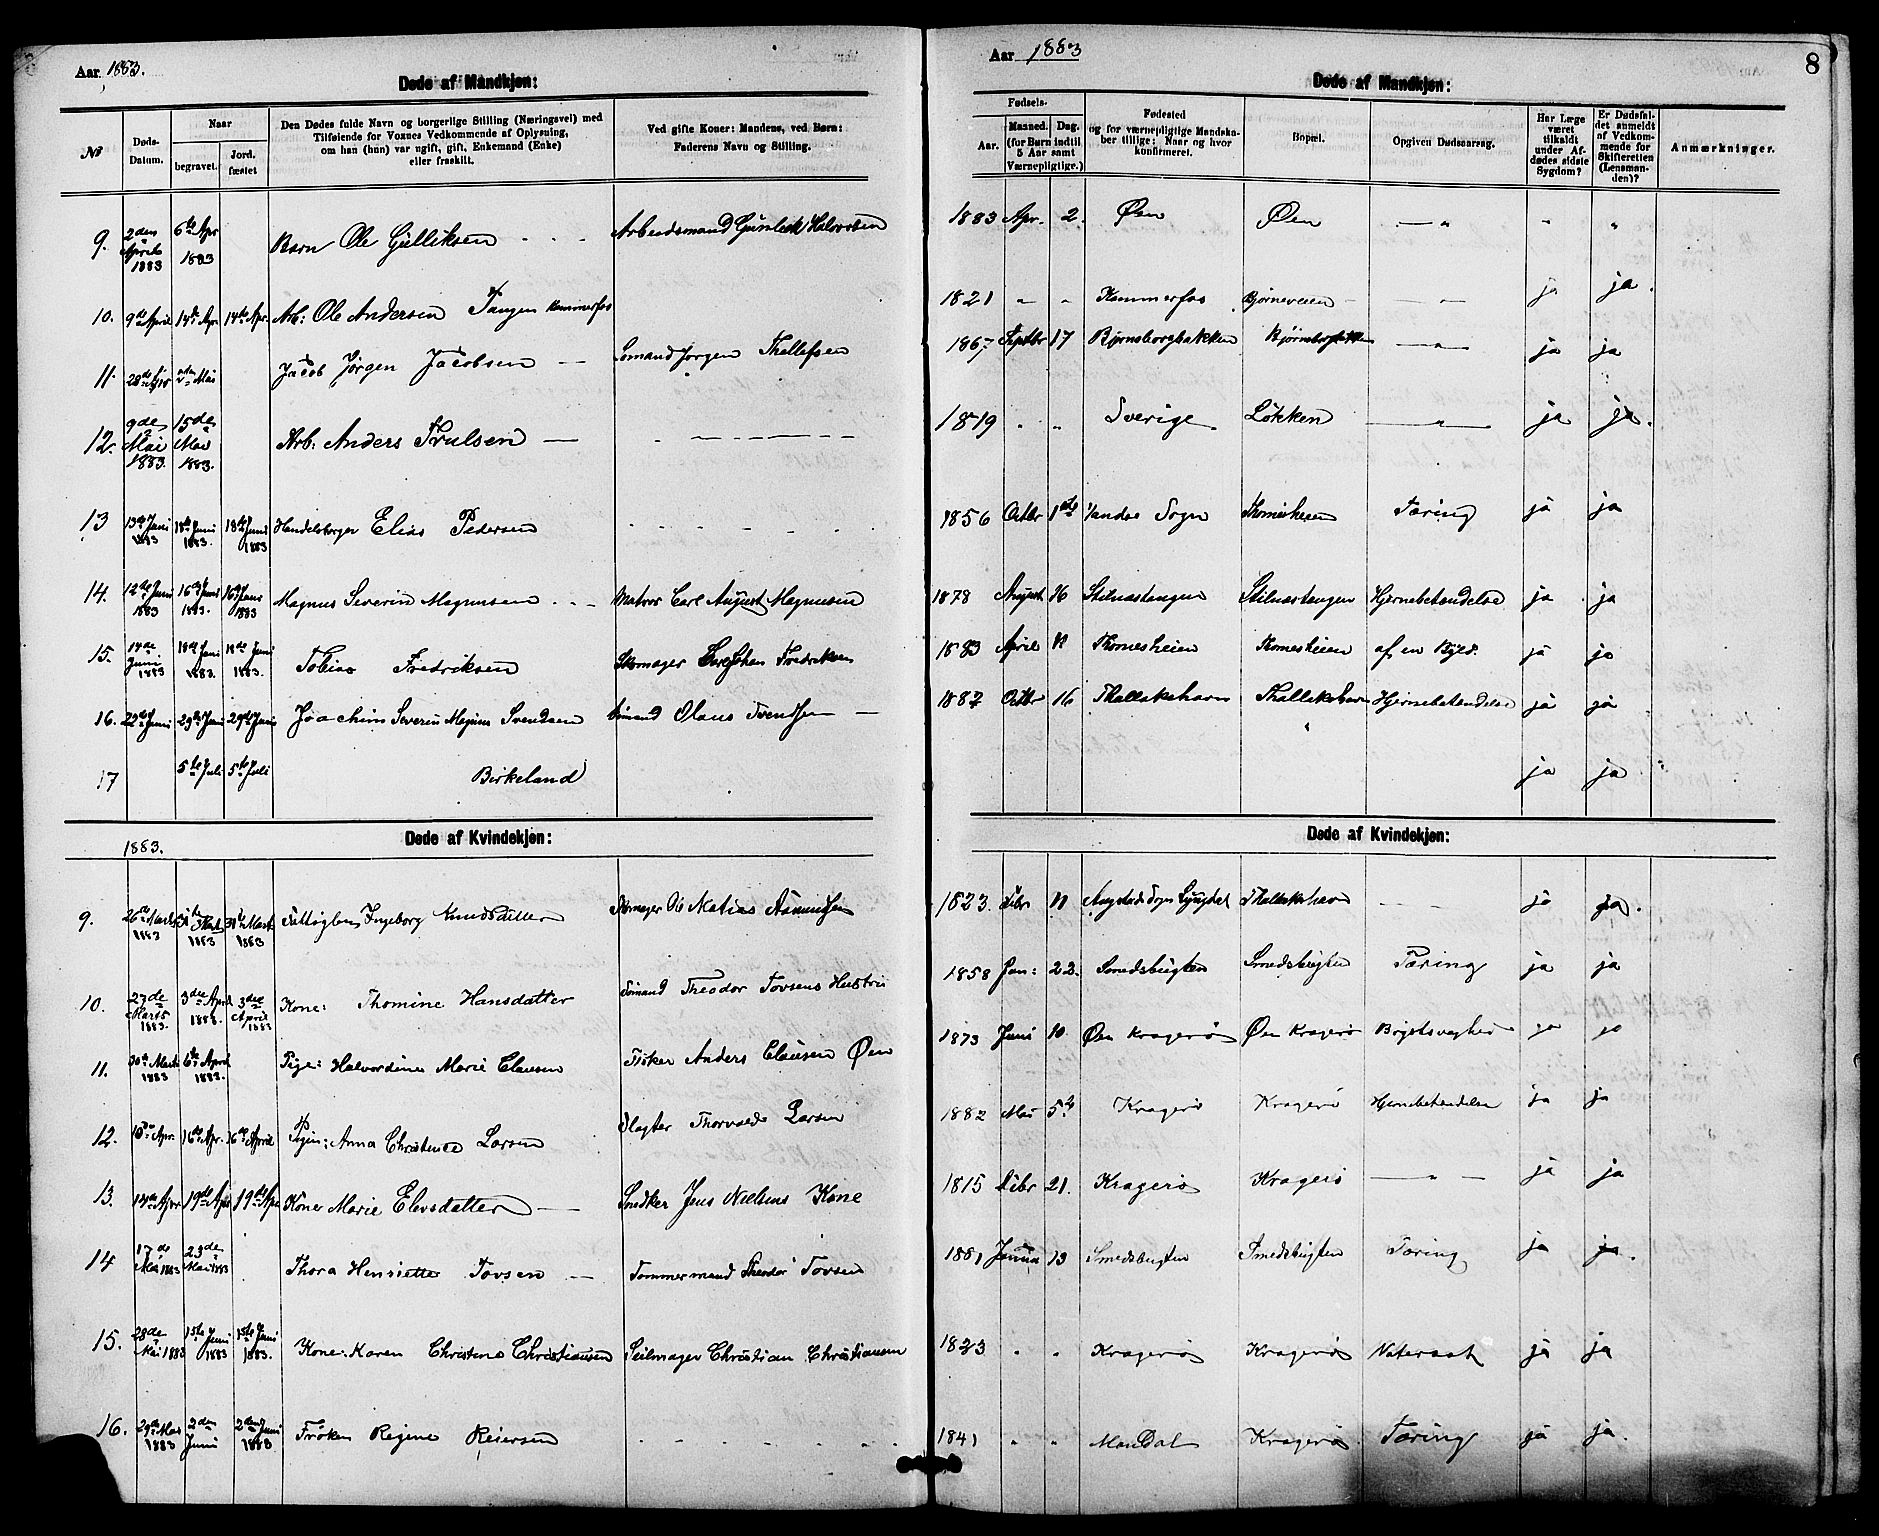 Aar 1883.
Døde af Mandkjøn:
№
Døds-Datum.
Naar
begravet.
Jord-fæstet
Den Dødes fulde Navn og borgerlige Stilling (Næringsvei) med
Tilføiende for Voxnes Vedkommende af Oplysning,
om han (hun) var ugift, gift, Enkemand (Enke)
eller fraskilt.
Ved gifte Koner: Mandens, ved Børn:
Faderens Navn og Stilling.
9. 2den April 1883 6te Apr 1883 Barn Ole Gulliksen Arbeidsmand Gunleik Halvorsen
10. 9de April 14de Apr. 14de Apr. Arb: Ole Andersen Tangen Kammerfos
11. 28de Apr Mai Jacob Jörgen Jacobsen — Sømand Jørgen Thallefsen
12. 9de Mai 1883. 15de Mai 1883. Arb: Anders Trulsen —
13 13de Juni 1883 18de Juni 1883. 18de Juni 1883 Handelsborger Elias Pedersen
14. 12te Juni 1883 16de Juni 1883. 16de Juni 1883 Magnus Severin Magnusen Matros Carl August Magnusen
15. 14de Juni 1883 18de Juni 1883. 18de Juni 1883. Tobias Fredriksen Skomager Carl Johan Fredriksen
16. 25de Juni 29de Juni 29de Juni Joachim Severin Magnus Svendsen Sømand Olaus Svendsen —
17 5te Juli 5te Juli Birkeland
Døde af Kvindekjøn:
1883.
9. 26de Marts 1883 31te Marts 1883 31te Marts 1883 Fattiglem Ingeborg Knudsdatter Skomager Ole Matias Asmundsen
10. 27de Marts 1883. 3die April 1883. 3die April 1883 Kone: Thomine Hansdatter Sømand Theodor Tovsens Hustru
11. 30te Marts 1883 6te April 1883. Pige: Halvordine Marie Clausen Fisker Anders Clausen Øen
12. 10de Apr. 16de Apr. 16de April Pigen: Anna Christence Larsen Slagter Thorvald Larsen
13. 14de Apr 19de Apr 19de Apr Kone Marie Elevsdatter — Snedker Jens Nielsens Kone
14 17de Mai 1883 23de Mai 1883 Thora Henriette Tovsen — Tommermand Theodor Tovsen
15. 28de Mai 1883 1ste Juni 1883 1ste Juni 1883. Kone: Karen Christene Christiansen Seilmager Christian Christiansen
16. 29de Mai 1883 2den Juni 2den Juni 1883 Frøken Regine Reiersen
Aar 1883
8
Døde af Mandkjøn:
Fødsels-
Aar.
Maaned. Dag.
(for Børn indtil
5 Aar samt
Værnepligtige.)
Fødested
og for værnepligtige Mandska-
ber tillige: Naar og hvor
konfirmeret.
Bopæl.
Opgiven Dødsaarsag.
Har Læge
været
tilkaldt
under Af-
dødes sidste
Sygdom?
Er Dødsfal-
det anmeldt
af Vedkom-
mende for
Skifteretten
(Lensman-
den)?
Anmærkninger.
1883 Apr. 2. Øen Øen — " " "
1821 " " Kammerfos Bjørneveien — " ja ja.
1867 Septbr 17 Bjørnsborgbakken Bjørnsborgbakken — " — ja ja
1819 " " Sverige Lökken — " — ja ja.
1856 Octbr 1ste Sandø Sogn Thomesheien Tæring ja ja
1878 August 16 Stilnæstangen Stilnæstangen Hjernebetændelse ja ja
1883 April 11 Thomesheien Thomesheien af en Byld. ja ja
1882 Octbr 16 Thallakshavn Thallakshavn Hjernebetændelse ja ja
ja ja
Døde af Kvindekjøn:
1823. Dcbr 11 Sogn Lyngdal Thallakshavn ja ja.
1858 Jan: 22. Smedsbugten Smedsbugten Tæring ja ja
1873 Juni 10. Øen Kragerö Øen Kragerö Brystsvaghed ja ja
1882 Mai 5te Kragerö Kragerö Hjernebetændelse ja ja
1815 Dcbr 21. Kragerö Kragerö — " — ja ja
1881 Januar 13 Smedsbugten Smedsbugten Tæring ja ja.
1823 " " Kragerö Kragerö Vatersot ja ja
1841 " " Mandal Kragerö Tæring ja ja.